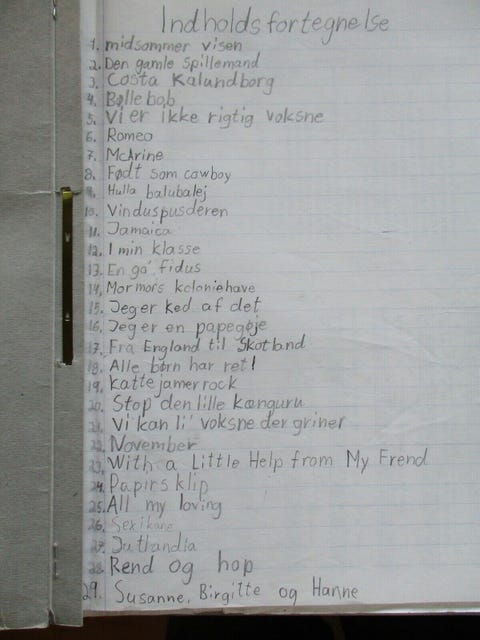 Indholdsfortegnelse
1. midsommer visen
2. Den gamle Spillemand
3. Costa Kalundborg
4. Bøllebob
5. Vi er ikke rigtig voksne
6. Romeo
7. McArine
8. Født som cowboy
9. Hulla balubalej
10. Vinduspusderen
11. Jamaica
12. I min klasse
13. En go' fidus
14. Mormors koloniehave
15. Jeg er ked af det
16. Jeg er en papegøje
17. Fra England til Skotland
18. Alle børn har ret!
19. kattejamerrock
20. Stop den lille kænguru
21. Vi kan li' voksne der griner
22. November
23. With a Little Help from My Frend
24. Papirsklip
25. All my loving
26. Sexikane
27. Jutlandia
28. Rend og hop
29. Susanne, Birgitte og Hanne